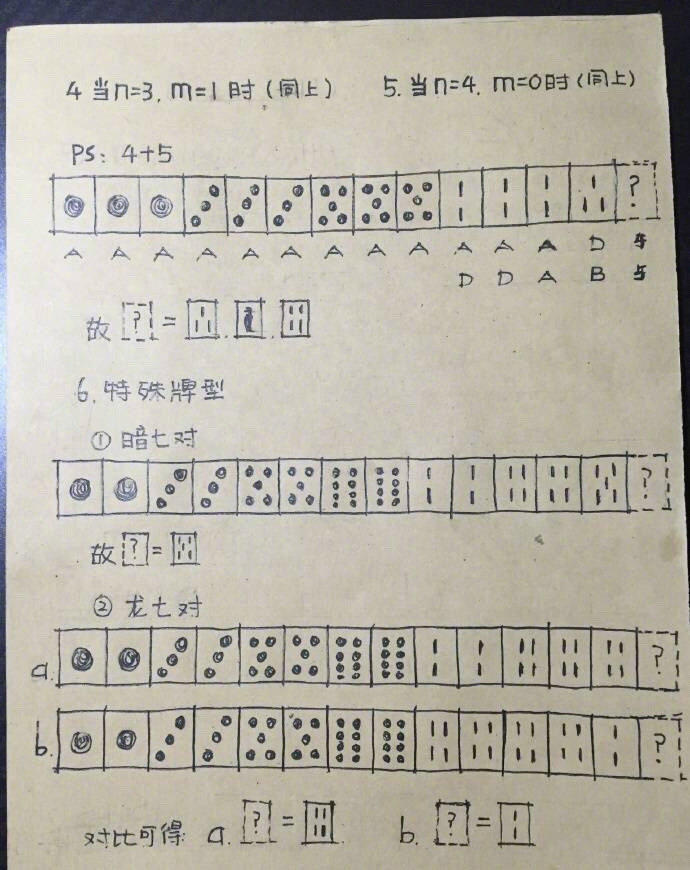 4 当n=3, m=1时(同上) 5. 当n=4, m=0时(同上)
PS: 4+5
?
A A A A A A A A A A A A D 与
D D A B 与
故 ? =
6. 特殊牌型
① 暗七对
?
故 ? =
② 龙七对
a. ?
b. ?
对比可得 a. ? = b. ? =